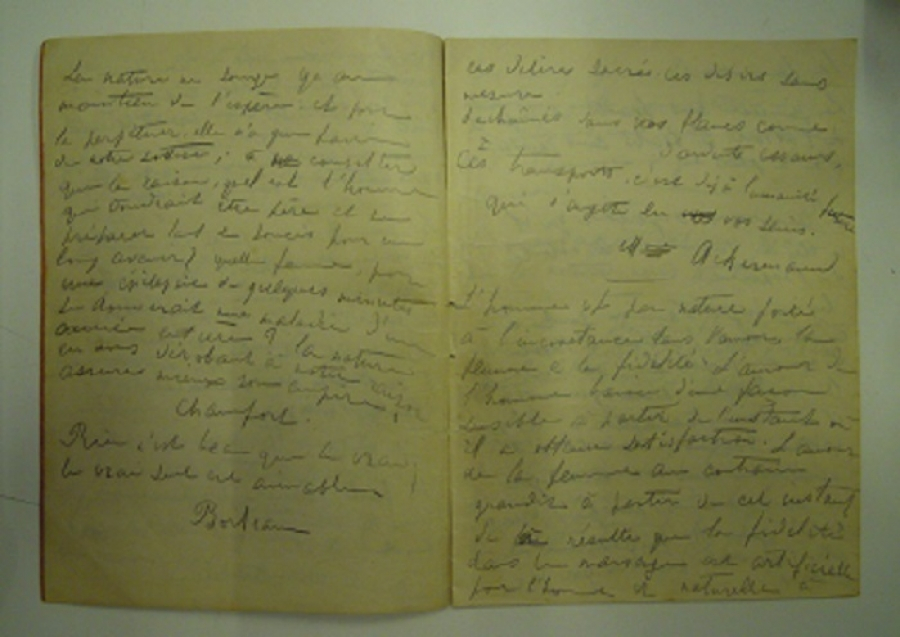 La nature ne songe qu'au
maintien de l'espèce et pour
la perpétuer, elle n'a que faire
de notre sottise; à consulter
que la raison, quel est l'homme
qui voudrait être père et se
préparer tant de soucis pour un
long avenir? quelle femme, pour
une épilepsie de quelques minutes
se donnerait une maladie d'une
année entière? la nature
en nous dérobant à notre raison
assure mieux son empire;
Chamfort.
Rien n'est beau que le vrai;
le vrai seul est aimable
ces délires sacrés ces désirs sans
mesure
déchaînés dans vos flancs comme
d'ardents essaims,
Ces transports, c'est déjà l'humanité future
qui s'agite en vos seins.
Ackermann
L'homme est par nature porté
à l'inconstance dans l'amour, la
femme à la fidélité. L'amour de
l'homme baisse d'une façon
sensible à partir de l'instant où
il a obtenu satisfaction. L'amour
de la femme au contraire
grandit à partir de cet instant
De résulte que la fidélité
dans le mariage est artificielle
pour l'homme et naturelle à